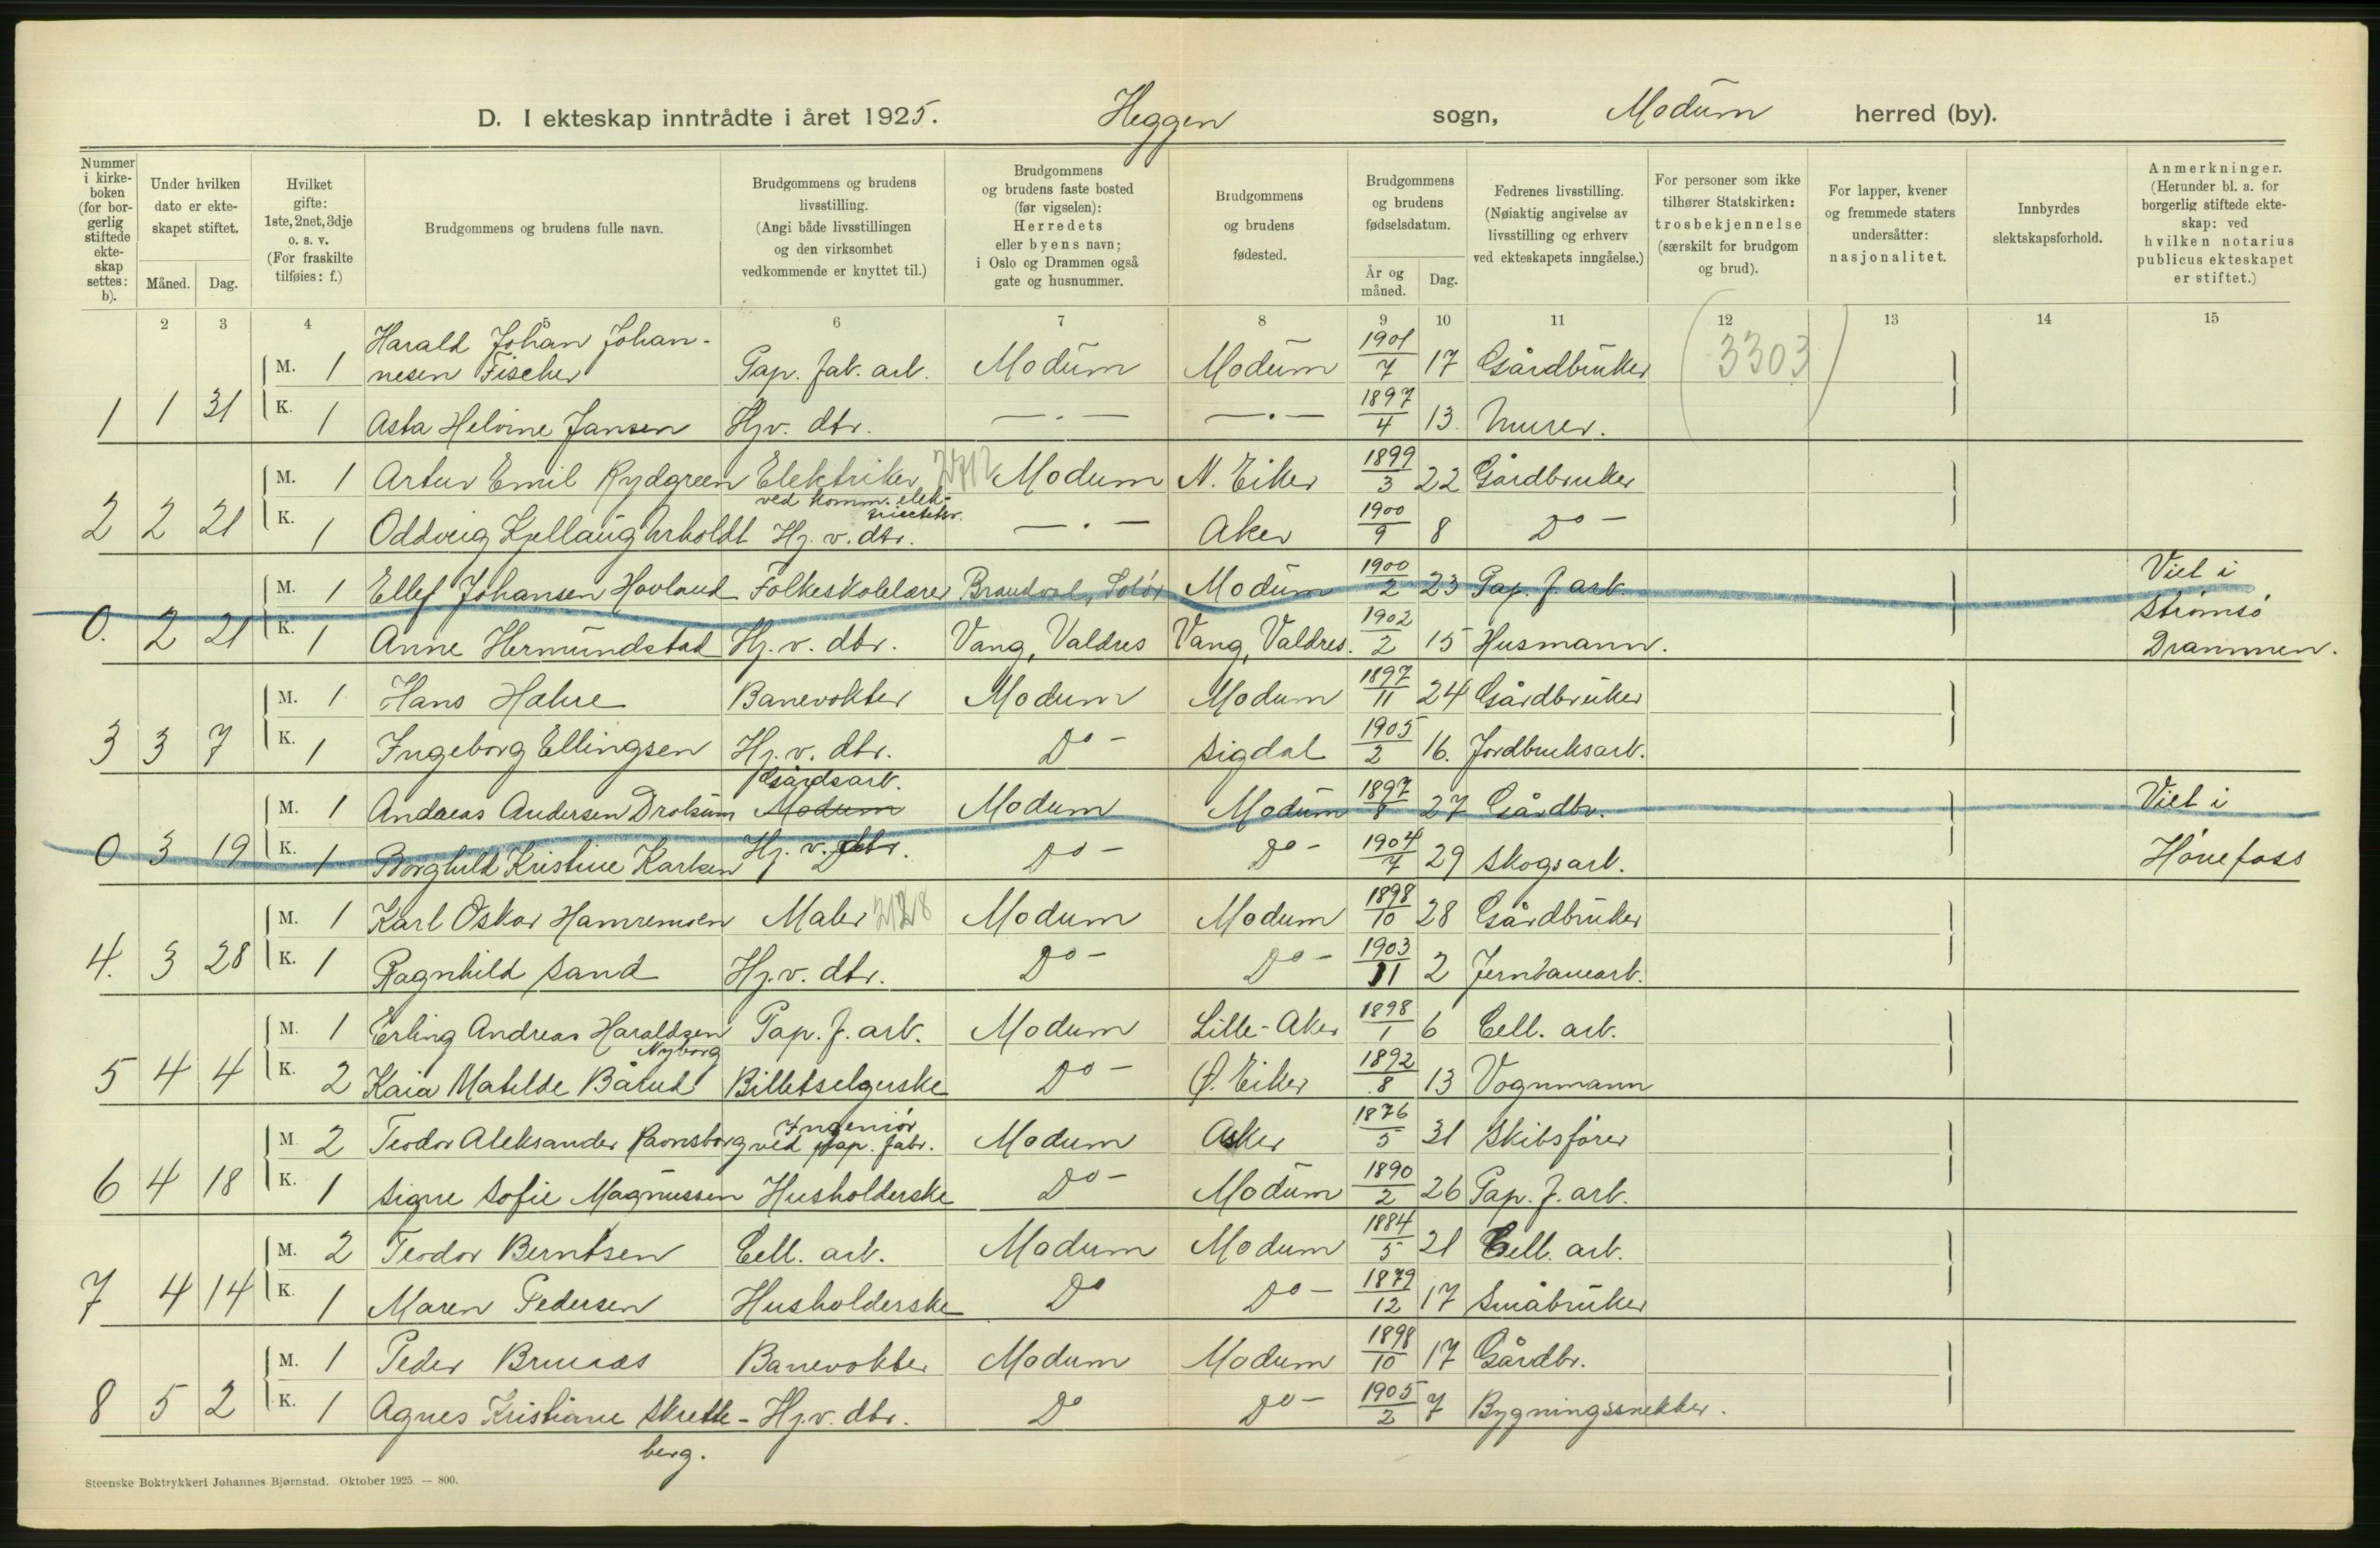 D. I ekteskap inntrådte i året 1925. Heggen sogn, Modum herred (by).
Nummer i kirkeboken (for borgerlig stiftede ekteskap settes: b).
Under hvilken dato er ekteskapet stiftet.
Måned. Dag.
Hvilket gifte: 1ste, 2net, 3dje o. s. v. (For fraskilte tilføies: f.)
Brudgommens og brudens fulle navn.
Brudgommens og brudens livsstilling. (Angi både livsstillingen og den virksomhet vedkommende er knyttet til.)
Brudgommens og brudens faste bosted (før vigselen): Herredets eller byens navn; i Oslo og Drammen også gate og husnummer.
Brudgommens og brudens fødested.
Brudgommens og brudens fødselsdatum.
År og måned. Dag.
Fedrenes livsstilling. (Nøiaktig angivelse av livsstilling og erhverv ved ekteskapets inngåelse.)
For personer som ikke tilhører Statskirken: trosbekjennelse (særskilt for brudgom og brud).
For lapper, kvener og fremmede staters undersåtter: nasjonalitet.
Innbyrdes slektskapsforhold.
Anmerkninger. (Herunder bl. a. for borgerlig stiftede ekteskap: ved hvilken notarius publicus ekteskapet er stiftet.)
2 3 4 5 6 7 8 9 10 11 12 13 14 15
M. 1 Harald Johan Johannesen Fischer Pap. fab. arb. Modum Modum 1901/7 17 Gårdbruker (3303)
1 1 31 K. 1 Asta Helvine Jansen Hjv. dtr. — · — — · — 1897/4 13. Murer.
M. 1 Artur Emil Rydgreen Elektriker ved komm. elek- Modum N. Eiker 1899/3 22 Gårdbruker
2 2 21 K. 1 Oddveig Kjellaug Hj. v. dtr. — · — Aker 1900/9 8 Do —
M. 1 Ellef Johansen Hovland Folkeskolelærer Brandval, Solør Modum 1900/2 23 Pap. f. arb. Viet i
0. 2 21 K. 1 Anne Hermundstad Hj. v. dtr. Vang, Valdres Vang, Valdres. 1902/2 15 Husmann. Strømsø Drammen.
M. 1 Hans Hæhre Banevokter Modum Modum 1897/11 24 Gårdbruker
3 3 7 K. 1 Ingeborg Ellingsen Hj. v. dtr. Do — Sigdal 1905/2 16. Jordbruksarb.
M. 1 Andreas Andersen Drolsum Gårdsarb. Modum Modum Modum 1897/8 27 Gårdbr. Viet i
0 3 19 K. 1 Borghild Kristine Karlsen Hj. v. dtr. Do — Do — 1904/7 29 Skogsarb. Hønefoss
M. 1 Karl Oskar Hamremoen Maler 2128 Modum Modum 1898/10 28 Gårdbruker
4. 3 28 K. 1 Ragnhild Sand Hj. v. dtr. Do — Do — 1903/11 2 Jernbanearb.
M. 1 Erling Andreas Haraldsen Nyborg Pap. f. arb. Modum Lille-Aker 1898/1 6 Cell. arb.
5 4 4 K. 2 Kaia Matilde Bårud Billetselgerske Do — Ø. Eiker 1892/8 13 Vognmann
M. 2 Teodor Aleksander Ravnsborg Ingeniør ved pap. fabr. Modum Asker 1876/5 31 Skibsfører
6 4 18 K. 1 Signe Sofie Magnussen Husholderske Do — Modum 1890/2 26 Pap. f. arb.
M. 2 Teodor Berntsen Cell. arb. Modum Modum 1884/5 21 Cell. arb.
7 4 14 K. 1 Maren Pedersen Husholderske Do Do — 1879/12 17 Småbruker
M. 1 Peder Bruaas Banevokter Modum Modum 1898/10 17 Gårdbr.
8 5 2 K. 1 Agnes Kristiane Skretteberg. Hj. v. dtr. Do Do — 1905/2 7 Bygningssnekker.
Steenske Boktrykkeri Johannes Bjørnstad. Oktober 1925. — 800.